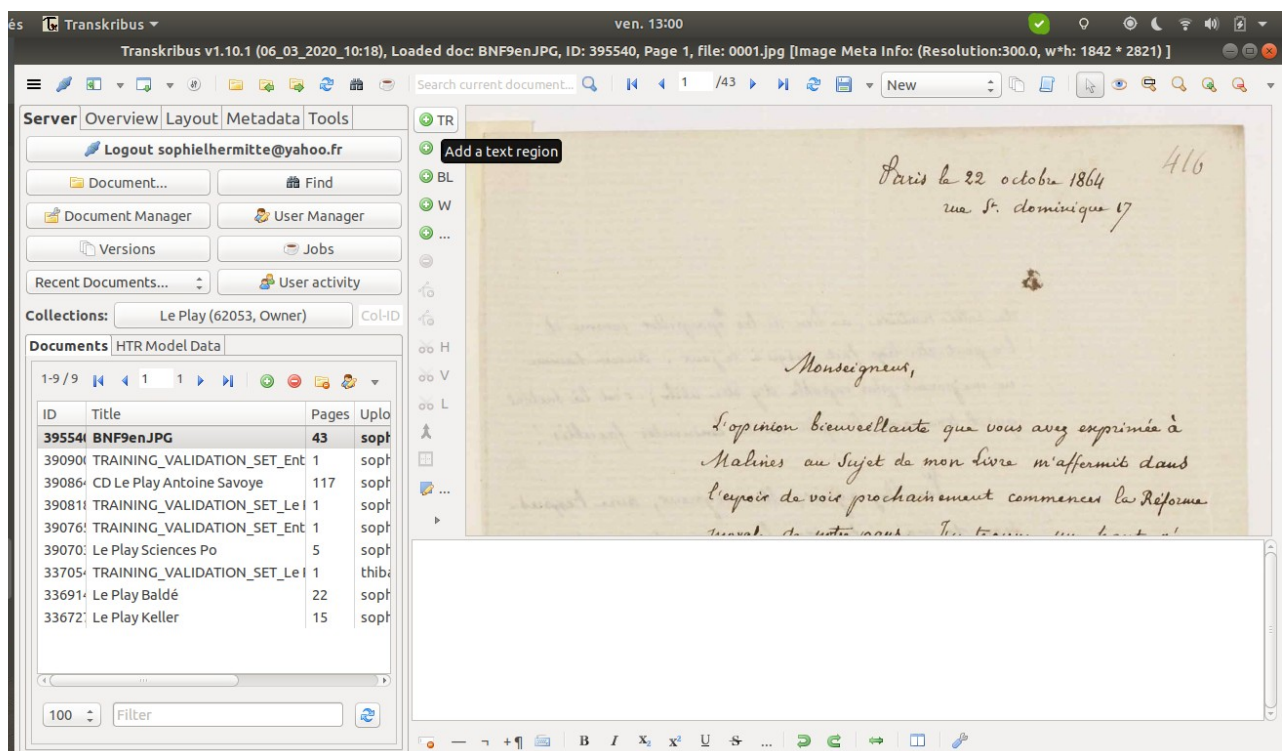 és Transkribus ven. 13:00
Transkribus v1.10.1 (06_03_2020_10:18), Loaded doc: BNF9enJPG, ID: 395540, Page 1, file: 0001.jpg [Image Meta Info: (Resolution:300.0, w*h: 1842 * 2821) ]
Search current document... 1 /43 New
Server Overview Layout Metadata Tools
Logout sophielhermitte@yahoo.fr
Document... Find
Document Manager User Manager
Versions Jobs
Recent Documents... User activity
Collections: Le Play (62053, Owner) Col-ID
Documents HTR Model Data
1-9 / 9 1 1
ID Title Pages Uplo
39554 BNF9enJPG 43 soph
39090 TRAINING_VALIDATION_SET_Ent 1 soph
39086 CD Le Play Antoine Savoye 117 soph
39081 TRAINING_VALIDATION_SET_Le 1 soph
39076 TRAINING_VALIDATION_SET_Ent 1 soph
39070 Le Play Sciences Po 5 soph
33705 TRAINING_VALIDATION_SET_Le 1 thiba
33691 Le Play Baldé 22 soph
33672 Le Play Keller 15 soph
100 Filter
TR
Add a text region
BL
W
...
H
V
L
...
416
Paris le 22 octobre 1864
rue St. dominique 17
Monseigneur,
L'opinion bienveillante que vous avez exprimée à
Malines au Sujet de mon Livre m'affermit dans
l'espoir de voir prochainement commencer la Réforme
B I X₂ X² U S ...